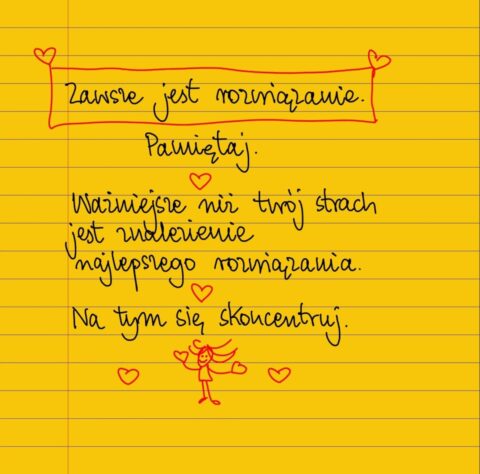 Zawsze jest rozwiązanie.
Pamiętaj.
Ważniejsze niż twój strach
jest znalezienie
najlepszego rozwiązania.
Na tym się skoncentruj.